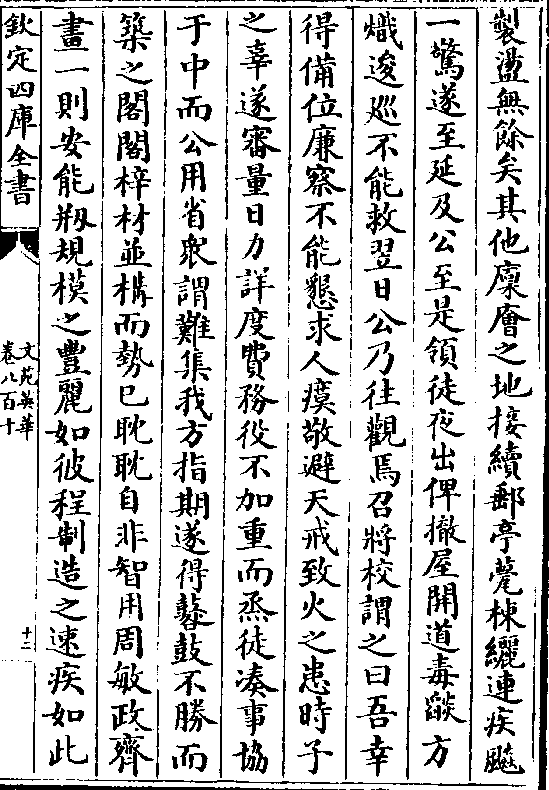 製盪無餘矣其他廩廥之地接續郵亭薨棟纚連疾飈
一驚遂至延及公至是領徒夜出俾撤屋開道毒燄方
熾逡巡不能救翌日公乃往觀焉召將校謂之曰吾幸
得備位廉察不能懇求人瘼敬避天戒致火之患時予
之辜遂審量日力詳度費務役不加重而烝徒湊事協
于中而公用省衆謂難集我方指期遂得鼛鼓不勝而
築之閣閣梓材並構而勢已耽耽自非智用周敏政齊
畫一則安能剏規模之豐麗如彼程制造之速疾如此
欽定四庫全書
文苑英華
卷八百十
十二